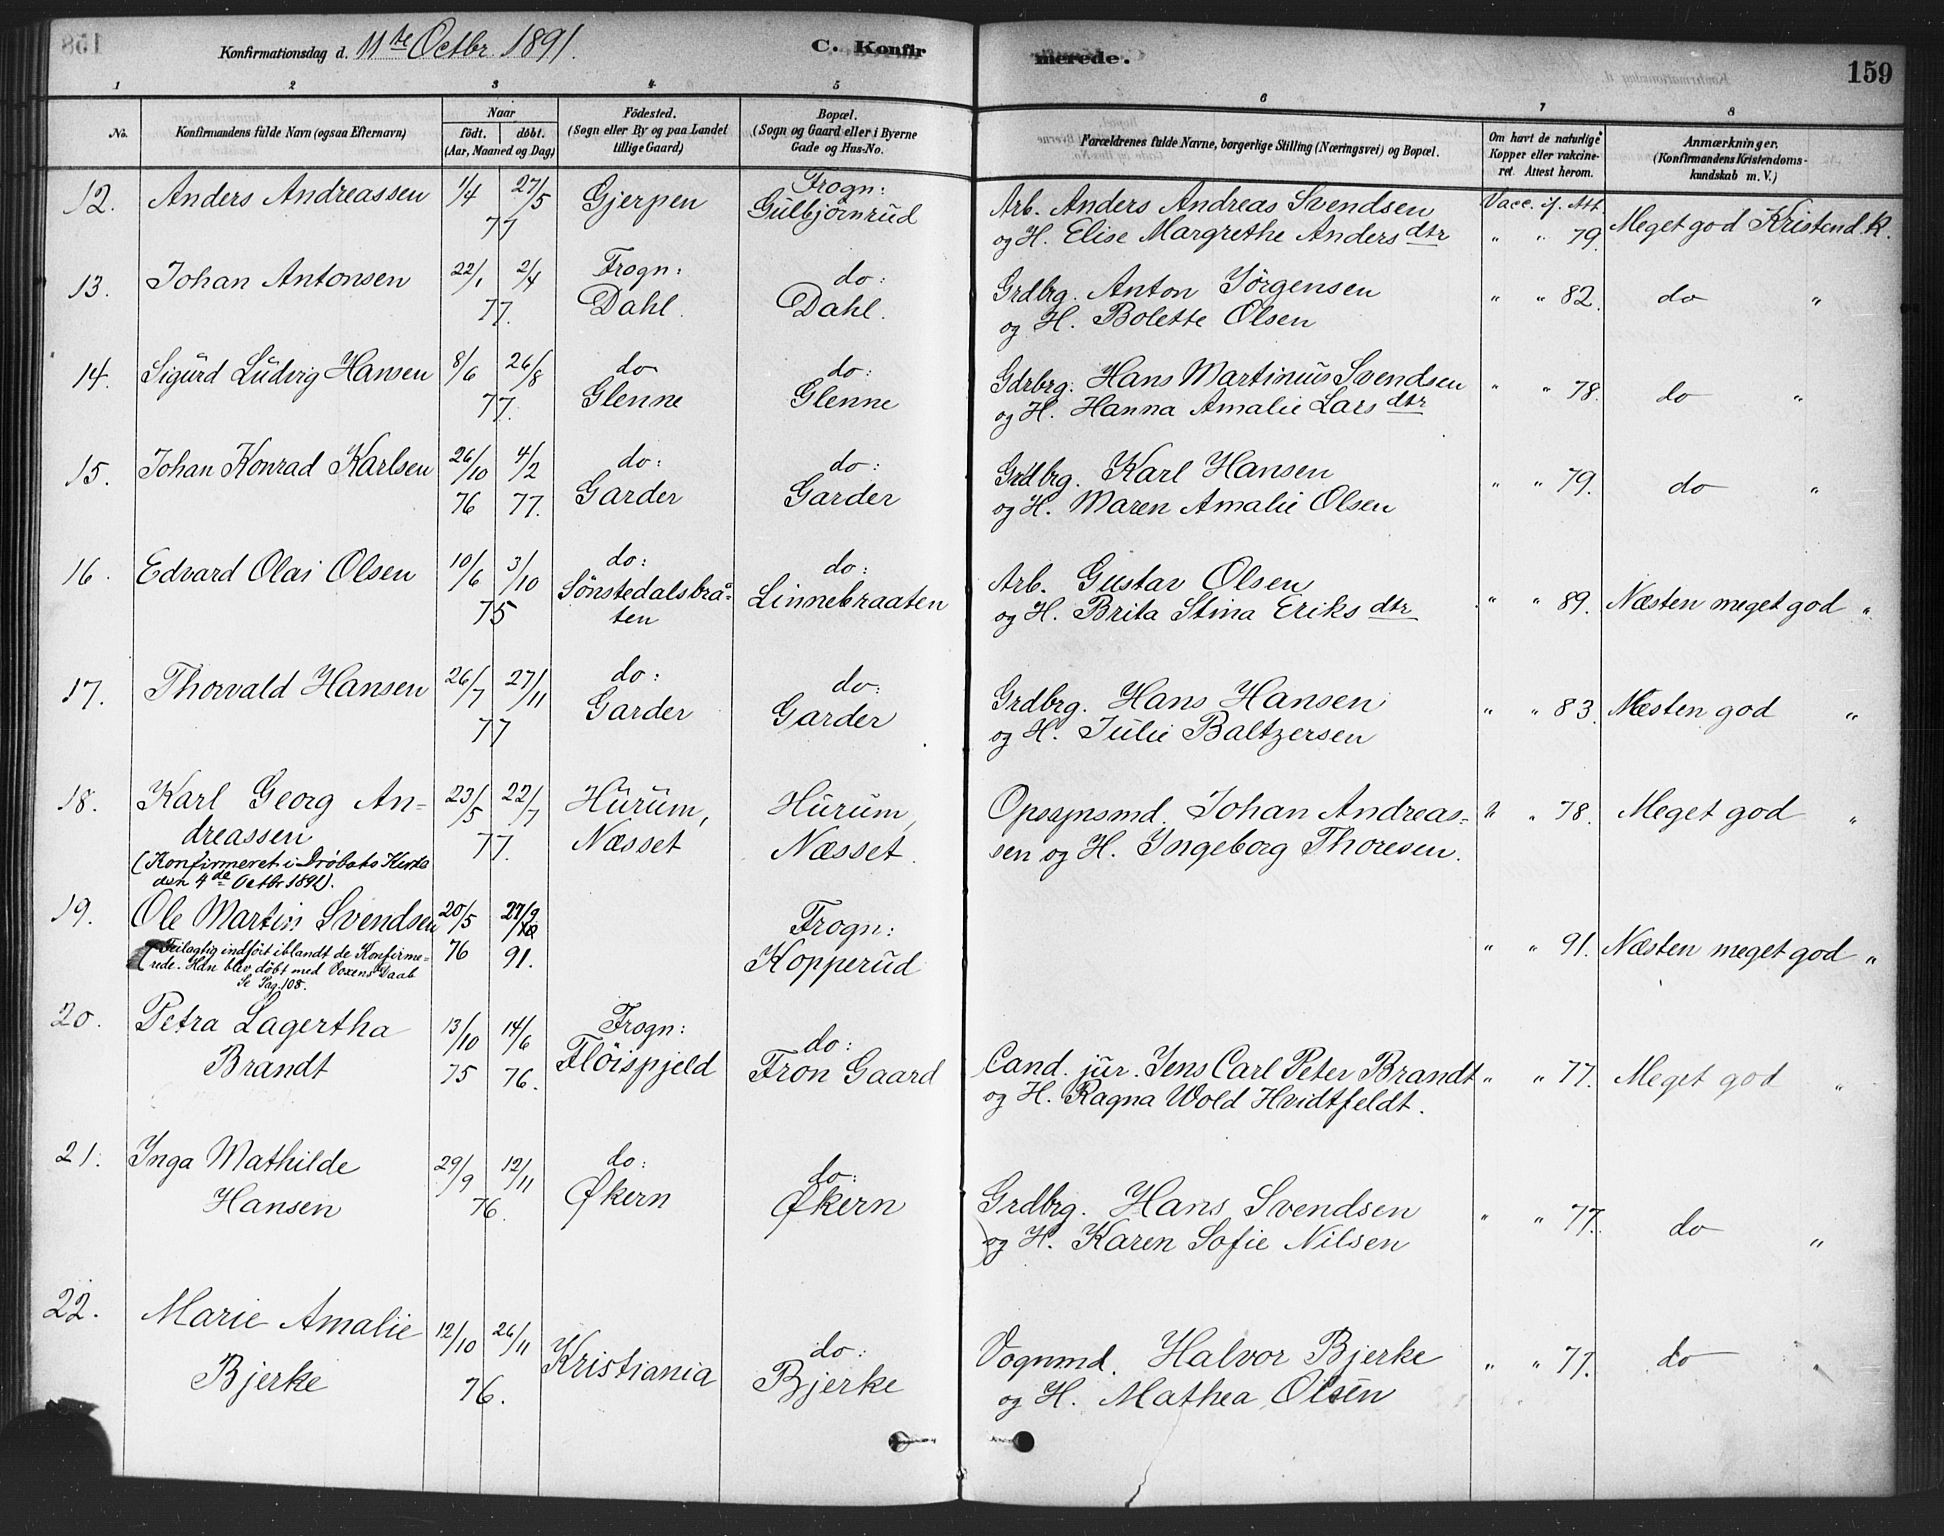 Konfirmationsdag d. 11te Octbr. 1891.
C. Konfir
merede.
159
1 2 3 4 5 6 7 8
No.
Konfirmandens fulde Navn (ogsaa Efternavn)
Naar
født. døbt.
(Aar, Maaned og Dag)
Fødested.
(Sogn eller By og paa Landet
tillige Gaard)
Bopæl.
(Sogn og Gaard eller i Byerne
Gade og Hus-No.
Forældrenes fulde Navne, borgerlige Stilling (Næringsvei) og Bopæl.
Om havt de naturlige
Kopper eller vakcine-
ret. Attest herom.
Anmærkninger.
(Konfirmandens Kristendoms-
kundskab m. V.)
12. Anders Andreassen 1/4 27/5 Gjerpen Frogn:
77 Gulbjørnrud
Arb. Anders Andreas Svendsen Vacc. if. Att.
og H. Elise Margrethe Andersdtr " " 79. Meget god Kristend.k.
13. Johan Antonsen 22/1 2/4 Frogn: do:
77. Dahl. Dahl.
Grdbrg. Anton Jörgensen " " 82. do "
og H. Bolette Olsen
14. Sigurd Ludvig Hansen 8/6 26/8 do do:
77. Glenne Glenne
Gdrbrg. Hans Martinus Svendsen " " 78. do "
og H. Hanna Amalie Larsdtr
15. Johan Konrad Karlsen 26/10 4/2 do: do:
76 77. Garder Garder
Grdbrg. Karl Hansen " " 79. do "
og H. Maren Amalie Olsen
16. Edvard Olai Olsen 10/6 3/10 do: do:
75 Sönstedalsbrå-
ten Linnebraaten
Arb. Gustav Olsen
og H. Brita Stina Eriksdtr " " 89. Næsten meget god "
17. Thorvald Hansen 26/7 27/11 do: do:
77 Garder Garder
Grdbrg. Hans Hansen " " 83. Næsten god "
og H. Julie Baltzersen
18. Karl Georg An-
dreassen 23/5 22/7 Hurum, Hurum,
77. Næsset Næsset.
(Konfirmeret i Drøbaks Kirke
den 4de Octbr 1891).
Opsynsmd. Johan Andreas-
sen og H. Ingeborg Thoresen. " " 78. Meget god "
19. Ole Martin Svendsen 20/5 27/9 Frogn:
76 91. Kopperud
(Feilagtig indført iblandt de Konfirme-
rede. Han blev døbt med Voxens Daab
Se Pag. 108.
" " 91. Næsten meget god "
20. Petra Lagertha
Brandt 13/10 14/6 Frogn: do:
75 76. Flöispjeld Fron Gaard
Cand. jur. Jens Carl Peter Brandt " " 77. Meget god "
og H. Ragna Wold Hvidtfeldt.
21. Inga Mathilde
Hansen 29/9 12/11 do: do:
76. Økern Økern
Grdbrg. Hans Svendsen " " 77. do "
og H. Karen Sofie Nilsen
22. Marie Amalie
Bjerke 12/10 26/11 Kristiania do:
76. Bjerke
Vognmd. Halvor Bjerke " " 77. do "
og H. Mathea Olsen